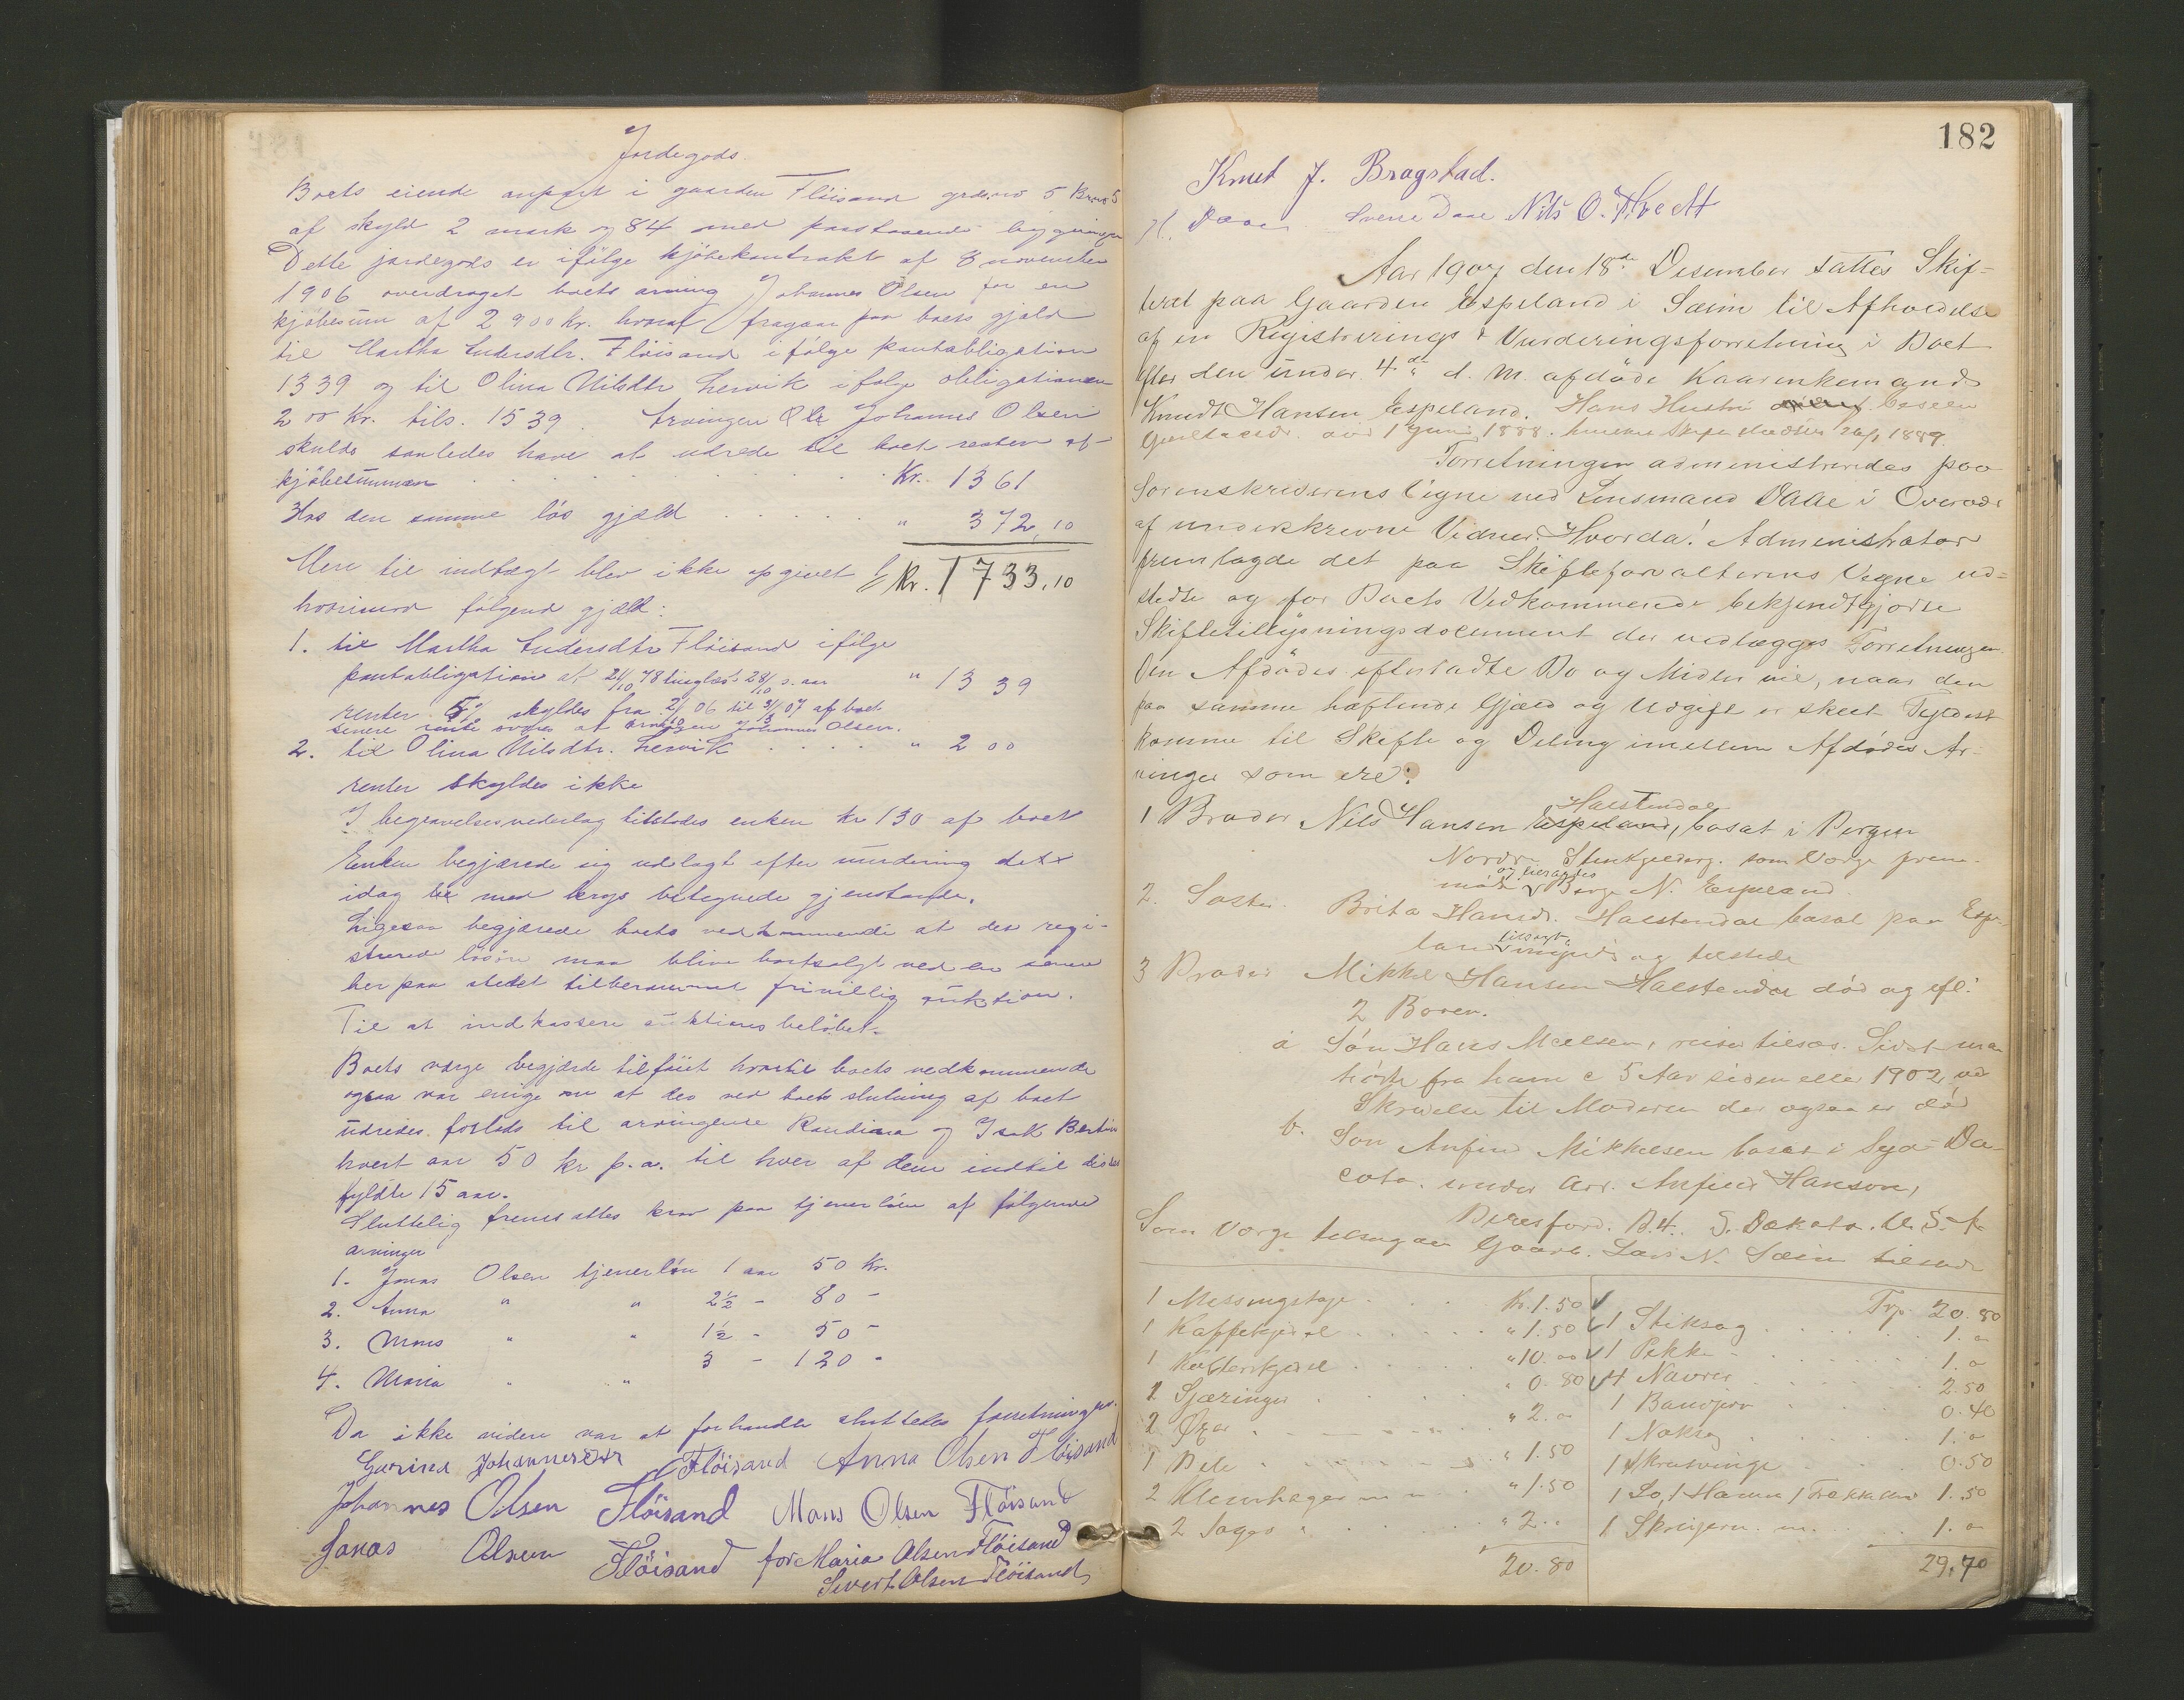 Jordegods.
Boets eiende anpart i gaarden Fløisand grdsno 5 Brno 5
af skyld 2 mark og 84 med paastaaende bygninger
Dette jordegods er ifølge kjøbekontrakt af 8 november
1906 overdraget boets arving Johannes Olsen for en
kjøbesum af 2900 kr. hvoraf fragaar paa boets gjæld
til Martha Andersdtr. Fløisand ifølge pantobligation
1339 og til Olina Nilsdtr Lervik ifølge obligationen
200 Kr. tils. 1539. Arvingen Johannes Olsen
skulde saaledes have at udrede til boet resten af
kjøbesummen . . . . Kr. 1361
Hos den samme løs gjæld . . . . " 372,10
Mere til indtægt blev ikke opgivet Kr. 1733,10
hvorimod følgende gjæld:
1. til Martha Andersdtr Fløisand ifølge
pantobligation af 21/10 78 tinglæst 28/10 s. aar " 1339
renter 5% skyldes fra 2/10 06 til 3/3 07 af boet
senere rente svares af arvingen Johannes Olsen.
2. til Olina Nilsdtr. Lervik . . . . " 200
renter skyldes ikke
I begravelsesvederlag tilstodes enken kr 130 af boet
Enken begjærede sig udlagt efter vurdering det
idag med kryds betegnede gjenstande.
Ligesaa begjærede boets vedkommende at det regi-
strerede løsøre maa blive bortsolgt ved en senere
her paa stedet tilberammet frivillig auktion.
Til at indkassere auktionsbeløbet
Boets værge begjærde tilføiet hvortil boets vedkommende
ogsaa var enige om at der ved boets slutning af boet
udredes forlods til arvingerne Randina og Isak Bertin
hvert aar 50 kr p.a. til hver af dem indtil disse
fyldte 15 aar.
Sluttelig fremsattes krav paa tjenerløn af følgende
arvinger
1. Jonas Olsen tjenerløn 1 aar 50 Kr.
2. Anna " " 2½ - 80 -
3. Mons " " 1½ - 50 -
4. Maria " " 3 - 120 -
Da ikke videre var at forhandle sluttedes forretningen.
Johannesdtr Fløisand Anna Olsen Fløisand
Johannes Olsen Fløisand Mons Olsen Fløisand
Jonas Olsen Fløisand for Maria Olsen Fløisand
Sivert Olsen Fløisand
182
Knut J. Bragstad.
Daae Sverre Daae Nils O. Tvedt
Aar 1907 den 18de Desember sattes Skif-
teret paa Gaarden Espeland i Sæim til Afholdelse
af en Registrerings & Vurderingsforretning i Boet
efter den under 4de d. M. afdøde Kaarenkemand
Knudt Hansen Espeland. Hans Hustru
død 1 Juni 1888. 1889.
Forretningen administreredes paa
Sorenskriverens Vegne ved Lensmand Daae i Overvær
af underskrevne Vidner. Hvorda! Administrator
fremlagde det paa Skifteforvalterens Vegne ud-
stedte og for Boets Vedkommende bekjendtgjorte
Skiftetillysningsdocument der vedlægges Forretningen.
Den Afdødes efterladte Bo og Midler vil, naar den
paa samme hæftende Gjæld og Udgift er skeet Fyldest
komme til Skifte og Deling imellem Afdødes Ar-
vinger som ere:
1 Broder Nils Hansen Espeland, Halstendal bosat i Bergen
Nordre som Værge frem-
mødte Børge N. Espeland
2. Søster. Brita Hansdr. Halstendal bosat paa Espe-
land tilsagt og tilstede
3 Broder Mikkel Hansen Halstendal død og efl:
2 Børn.
a Søn Hans Mikelsen, reiser tilsøs. Sidst man
hørte fra ham c 5 Aar siden eller 1902 ved
Skrivelse til Moderen der ogsaa er død
b. Søn Anfin Mikkelsen bosat i Syd-Da-
cota. under Adr. Anfin Hanson,
Beresford. B.4. S. Dakota. U. S. A
Som Værge tilsagdes Gaardb. Lars N. Sæim tilstede
1 Messingtage . . . . Kr. 1.50
1 Kaffekjedel . . . . " 1.50
1 Kobberkjedel . . . . " 10.00
2 Sjæringer . . . . " 0.80
2 Øxer . . . . " 2.00
1 Bile . . . . " 1.50
2 Klemhager m m . . " 1.50
2 Sager " . . . . " 2..
20.80
Trp. 20.80
1 Stiksag . . . . 1.00
1 Pikke . . . . 1.00
4 Navrer . . . . 2.50
1 Bandjern . . . . 0.40
1 Naksag . . . . 1.00
1 Skruvinge . . . . 0.50
1 Lo, 1 Hamer 1 Trækkniv 1.50
1 Skrujern m. . . . 1.00
29.70